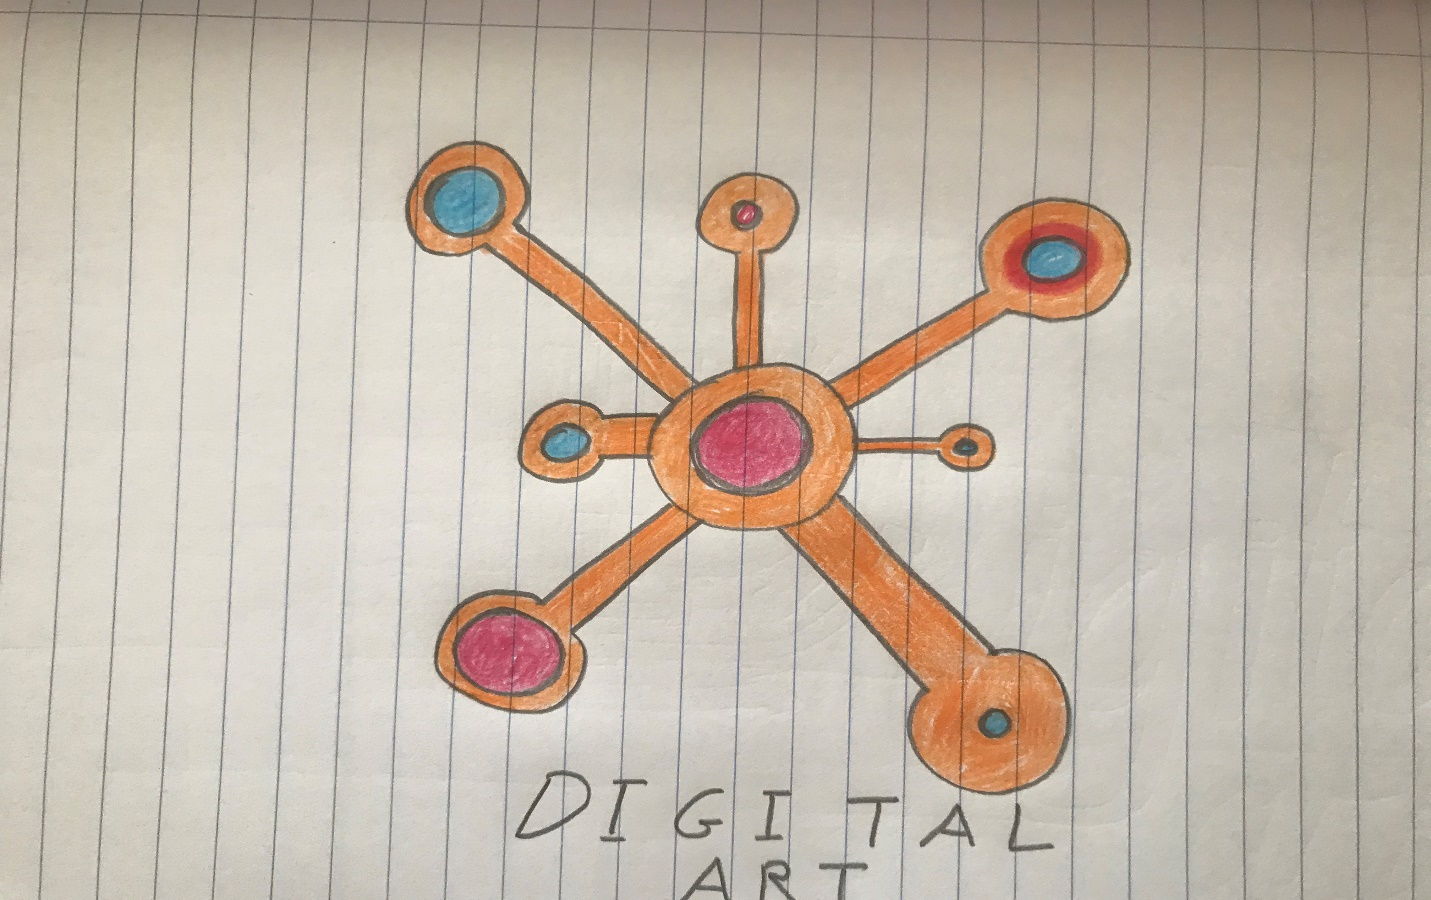 DIGITAL
ART